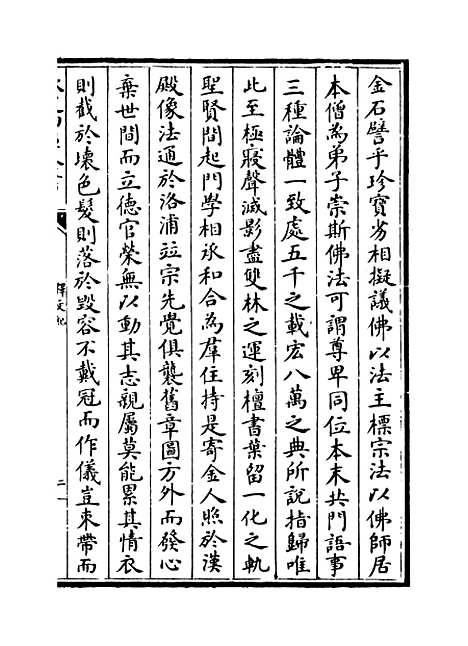 金石譬乎珍寳劣相擬議佛以法主標宗法以佛師居
本僧為弟子崇斯佛法可謂尊卑同位本末共門語事
三種論體一致處五千之載宏八萬之典所說指歸唯
此至極寢聲滅影盡雙林之運刻檀書葉留一化之軌
聖賢間起門學相承和合為羣住持是寄金人照於漢
殿像法通於洛浦竝宗先覺俱襲舊章圖方外而發心
棄世間而立德官榮無以動其志親屬莫能累其情衣
則截於壊色髮則落於毀容不戴冠而作儀豈束帶而
釋文紀